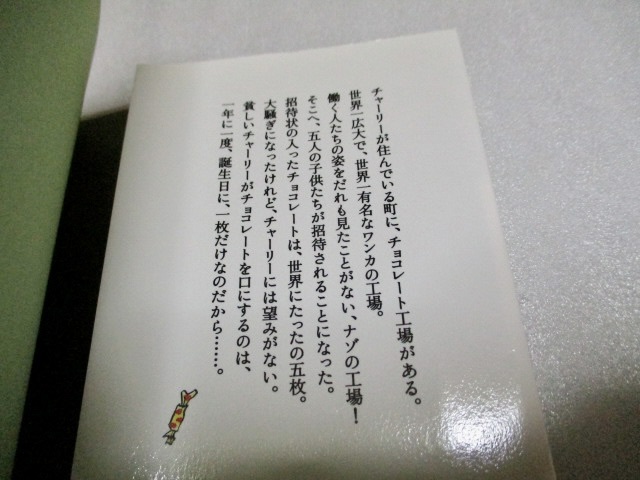 チャーリーが住んでいる町に、チョコレート工場がある。
世界一広大で、世界一有名なワンカの工場。
働く人たちの姿をだれも見たことがない、ナゾの工場！
そこへ、五人の子供たちが招待されることになった。
招待状の入ったチョコレートは、世界にたったの五枚。
大騒ぎになったけれど、チャーリーには望みがない。
貧しいチャーリーがチョコレートを口にするのは、
一年に一度、誕生日に、一枚だけなのだから……。